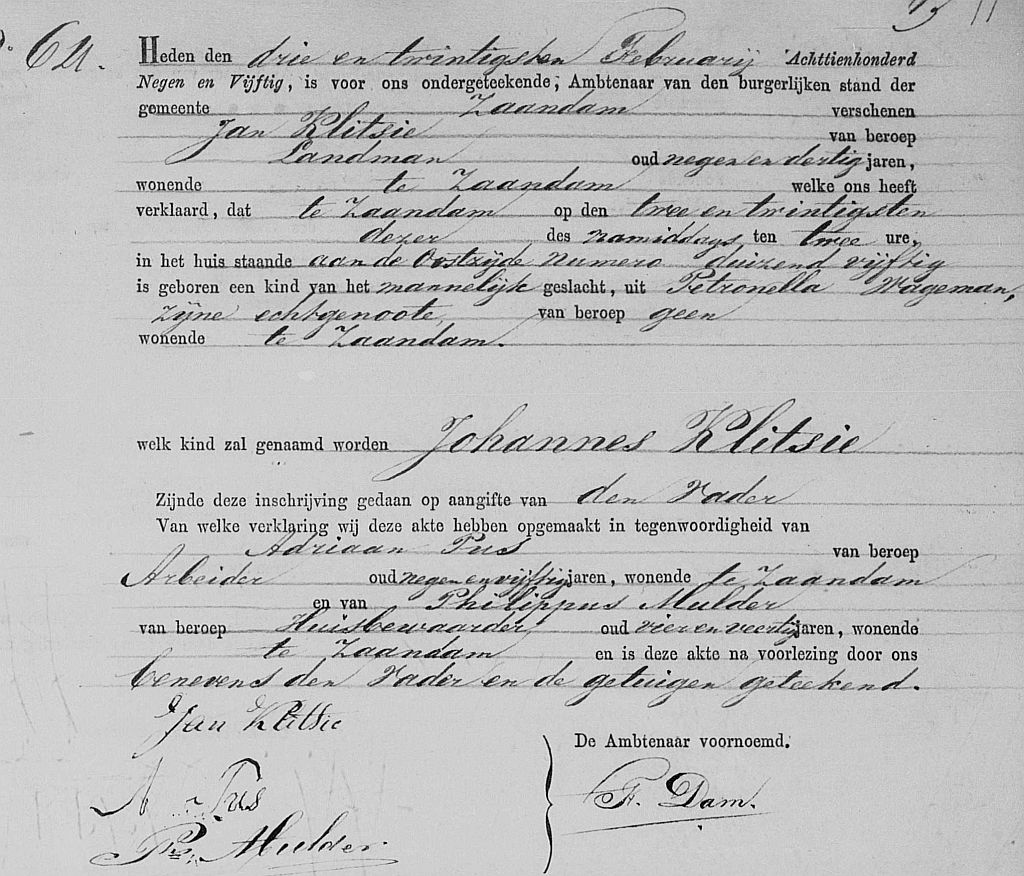 Heden den drie en twintigsten Februarij Achttienhonderd
Negen en Vijftig, is voor ons ondergeteekende, Ambtenaar van den burgerlijken stand der
gemeente Zaandam verschenen
Jan Klitsie van beroep
Landman oud negen en dertig jaren,
wonende te Zaandam welke ons heeft
verklaard, dat te Zaandam op den twee en twintigsten
dezer des namiddags ten twee ure,
in het huis staande aan de Oostzijde Numero duizend vijftig
is geboren een kind van het mannelijk geslacht, uit Petronella Wageman,
zijne echtgenoote, van beroep geen
wonende te Zaandam.
welk kind zal genaamd worden Johannes Klitsie
Zijnde deze inschrijving gedaan op aangifte van den Vader
Van welke verklaring wij deze akte hebben opgemaakt in tegenwoordigheid van
Adriaan Pus van beroep
Arbeider oud negen en vijftig jaren, wonende te Zaandam
en van Philippus Mulder
van beroep Huisbewaarder, oud vier en veertig jaren, wonende
te Zaandam en is deze akte na voorlezing door ons
benevens den Vader en de getuigen geteekend.
Jan Klitsie
De Ambtenaar voornoemd.
A Pus
F. Dam.
Ph. Mulder